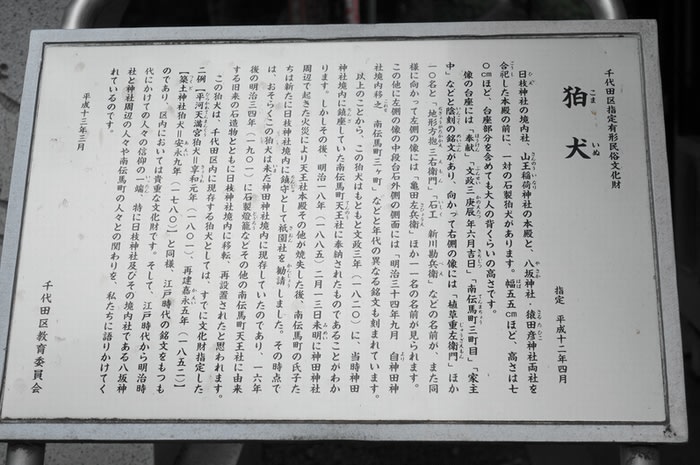 千代田区指定有形民俗文化財
狛犬
こま いぬ
指定 平成十二年四月
日枝神社の境内社、山王稲荷神社の本殿と、八坂神社・猿田彦神社両社を
合祀した本殿の前に、一対の石製狛犬があります。幅五五cmほど、高さは七
〇cmほど、台座部分を含めても大人の背くらいの高さです。
像の台座には「奉献」「文政三庚辰年六月吉日」「南伝馬町三町目」「家主
中」などと陰刻の銘文があり、向かって右側の像には「植草重左衛門」ほか
一〇名と、「地形方抱三右衛門」「石工 新川勘兵衛」などの名前が、また同
様に向かって左側の像には「亀田左兵衛」ほか一一名の名前が見られます。
この他に左側の像の中段台石外側の側面には「明治三十四年九月 自神田神
社境内移之 南伝馬町三ヶ町」などと年代の異なる銘文も刻まれています。
以上のことから、この狛犬はもともと文政三年（一八二〇）に、当時神田
神社境内に鎮座していた南伝馬町天王社に奉納されたものであることがわか
ります。しかしその後、明治一八年（一八八五）二月一三日未明に神田神社
周辺で起きた火災により天王社本殿その他が焼失した後、南伝馬町の氏子た
ちは新たに日枝神社境内に鎮守として祇園社を勧請しました。その時点で
は、おそらくこの狛犬は未だ神田神社境内に現存していたのであり、一六年
後の明治三四年（一九〇一）に石製燈籠などその他の南伝馬町天王社に由来
する旧来の石造物とともに日枝神社境内に移転、再設置されたと思われます。
この狛犬は、千代田区内に現存する狛犬としては、すでに文化財指定した
二例【平河天満宮狛犬＝享和元年（一八〇一）、再建嘉永五年（一八五二）】
【築土神社狛犬＝安永九年（一七八〇）】と同様、江戸時代の銘文をもつも
のであり、区内においては貴重な文化財です。そして、江戸時代から明治時
代にかけての人々の信仰の一端、特に日枝神社及びその境内社である八坂神
社と神社周辺の人々や南伝馬町の人々との関わりを、私たちに語りかけてく
れているのです。
平成十三年三月
千代田区教育委員会